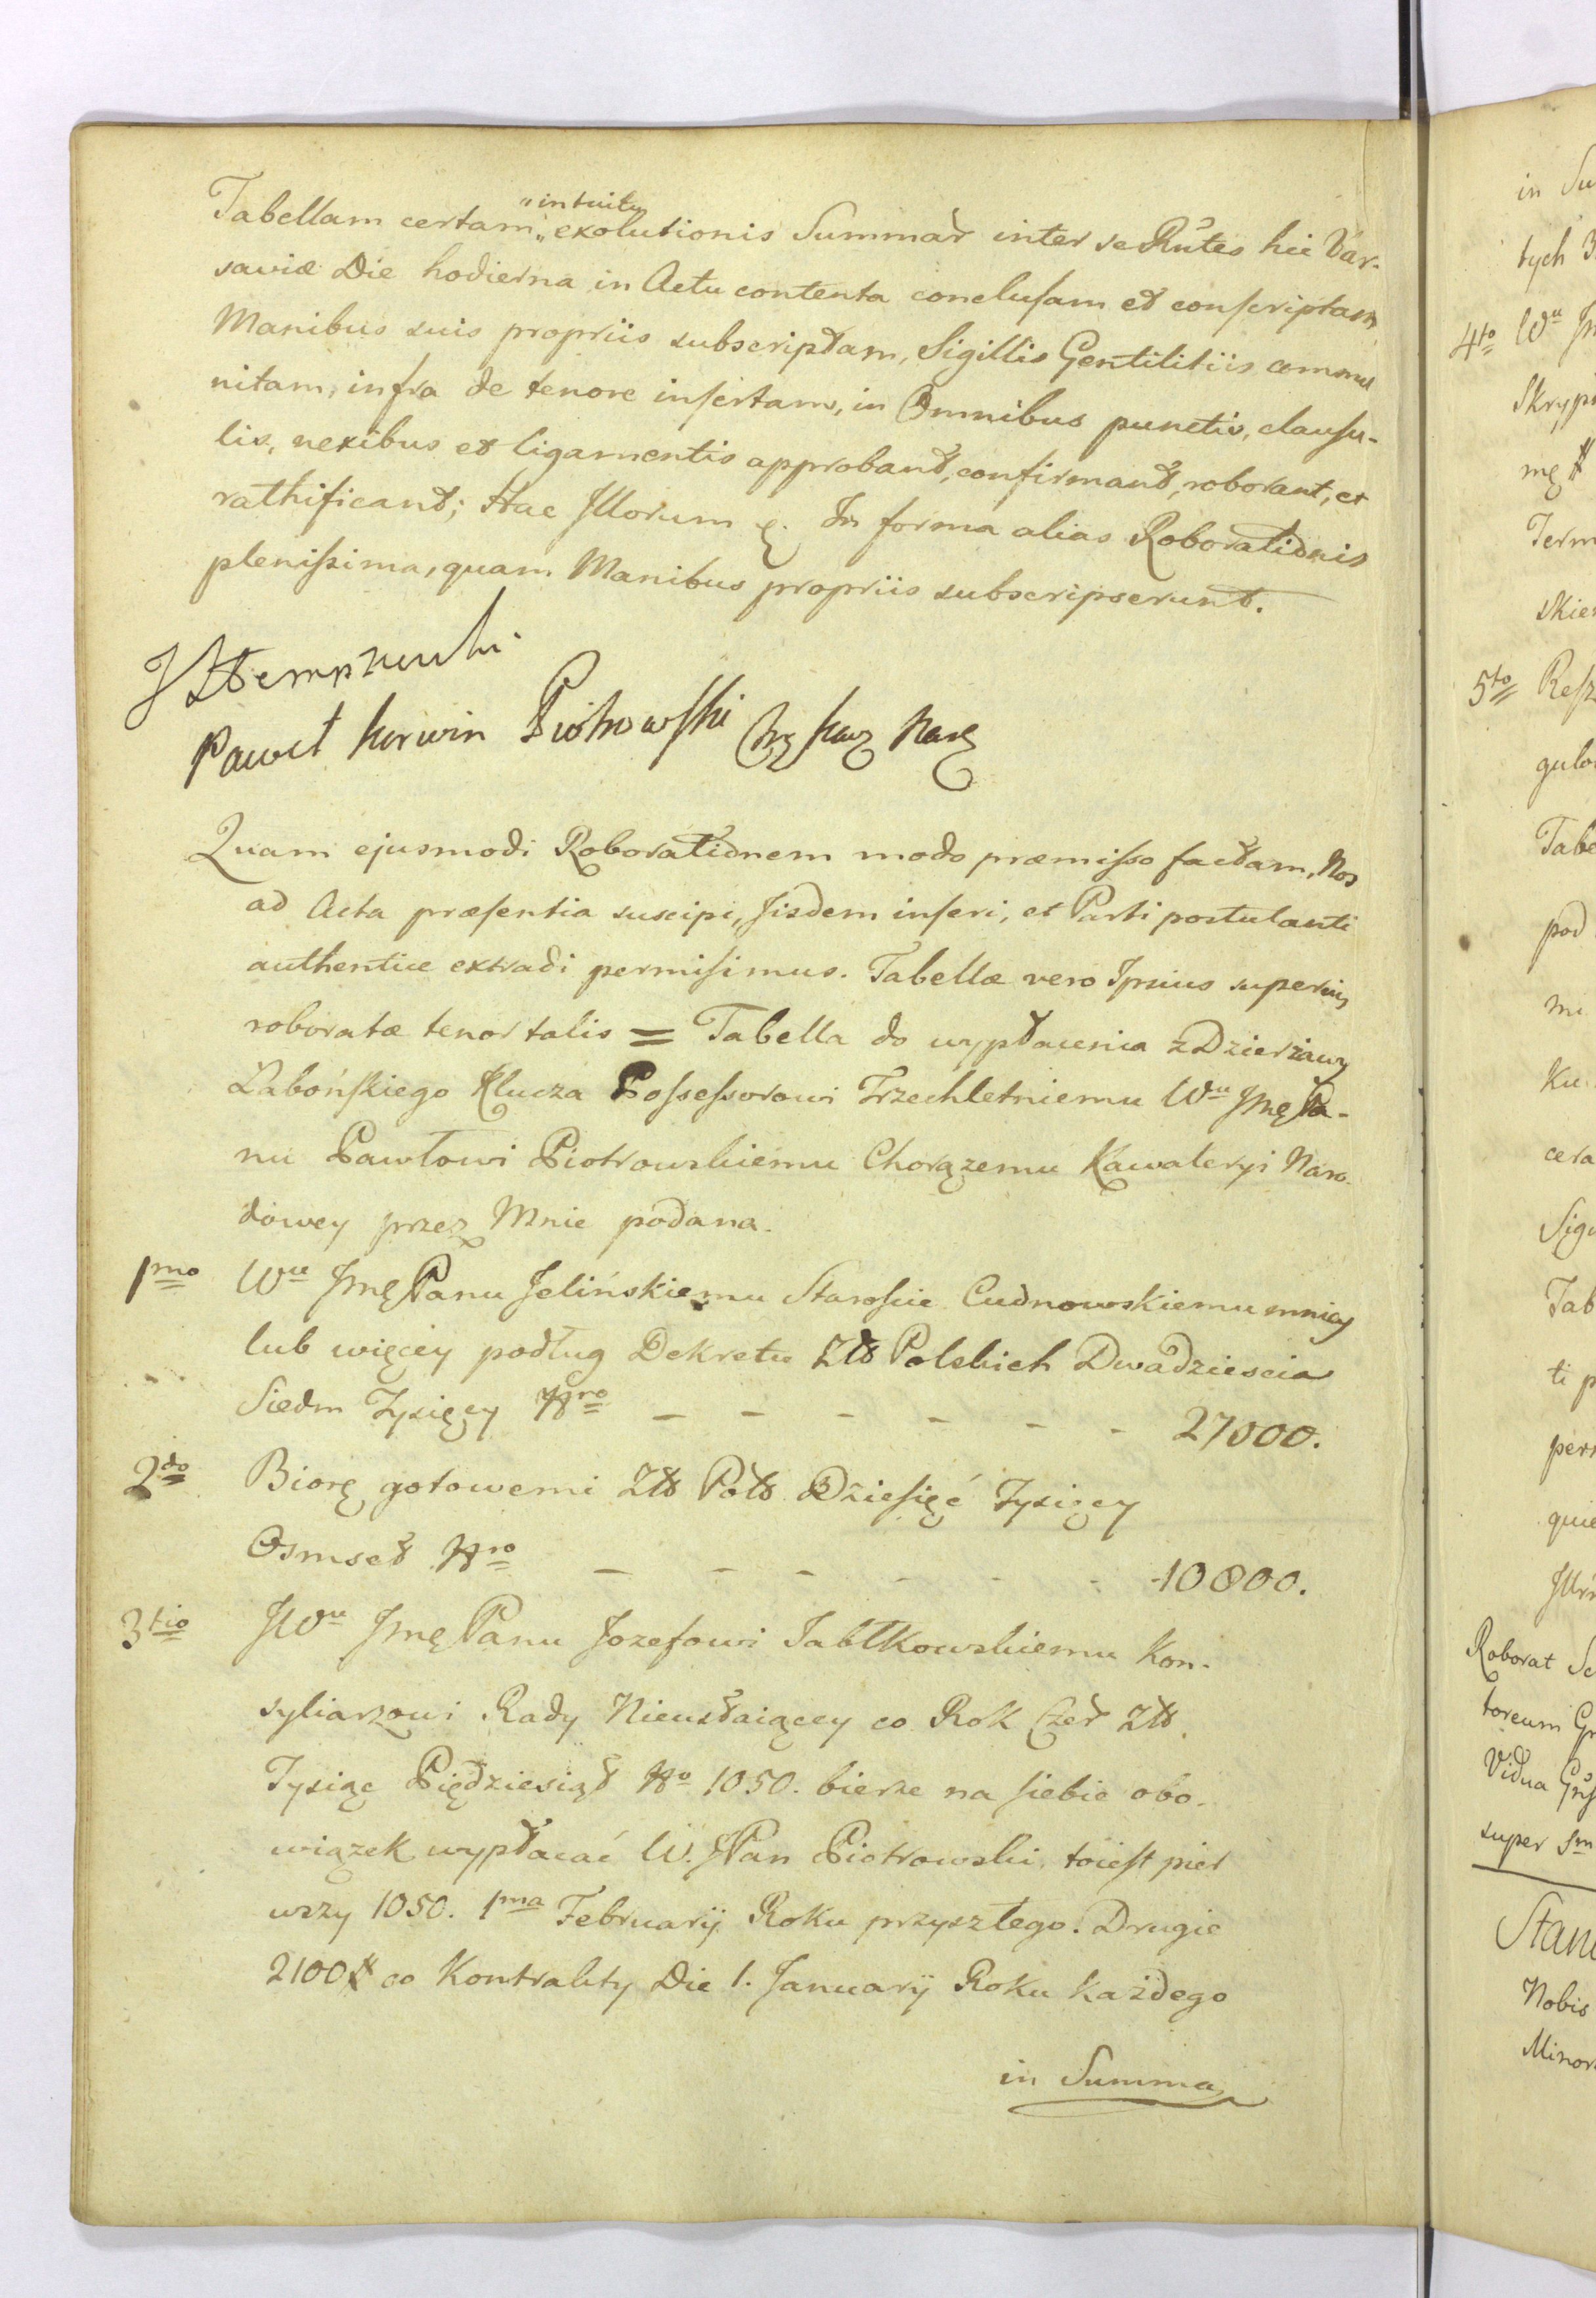 Tabellam certam "intuitu" exolutionis Summar inter se Rntes hic Var-
saviæ Die hodierna in Actu contenta conclusam et conscriptam
Manibus suis propriis subscriptam, Sigillis Gentilitiis commu
nitam, infra de tenore insertam, in Omnibus punctis, clausu-
lis, nexibus et ligamentis approbant, confirmant, roborant, et
rathificant; Hac Illorum In forma alias Roborationis
plenissima, quam Manibus propriis subscripserunt.
J Stempkowski
Paweł Korwin Piotrowski Chą Kaw Nar
Quam ejusmodi Roborationem modo præmisso factam, Nos
ad Acta præsentia suscipi, Iisdem inseri, et Parti postulanti
authentice extradi permisimus. Tabellæ vero Ipsius superius
roboratæ tenor talis = Tabella do wypłacenia z Dzierżawy
Labońskiego Klucza Possessorowi Trzechletniemu Wu Jmę Pa-
nu Pawłowi Piotrowskiemu Chorązemu Kawaleryi Naro-
dowey przez Mnie podana.
1mo Wu Jmę Panu Jelińskiemu Staroście Cudnowskiemu mniey
lub więcey podług Dekretu Złt Polskich Dwadziescia
Siedm Tysięcy Nro - - - - - - 27000.
2do Biorę gotowemi Złt Polt Dziesięć Tysięcy
Osmset Nro - - - - - - 10800.
3tio JWu Jmę Panu Jozefowi Jabłkowskiemu Kon-
syliarzowi Rady Nieustaiącey co Rok Czer Złt
Tysiąc Piędziesiąt No 1050. bierze na siebie obo-
wiązek wypłacać W. JPan Piotrowski, toiest pier
wszy 1050. 1ma Februarij Roku przyszłego. Drugie
2100 # co Kontrakty Die 1. Januarij Roku każdego
in Summa
in Su
tych
4to Wu Jm
Skryp
mę #
Term
skie
5to Resz
gulo
Tabe
pod
mi
Ku
cera
Sig
Tab
ti p
per
quie
Roborat Sc
toreum G
Vidua
super Sm
Stan
Nobis
Minor